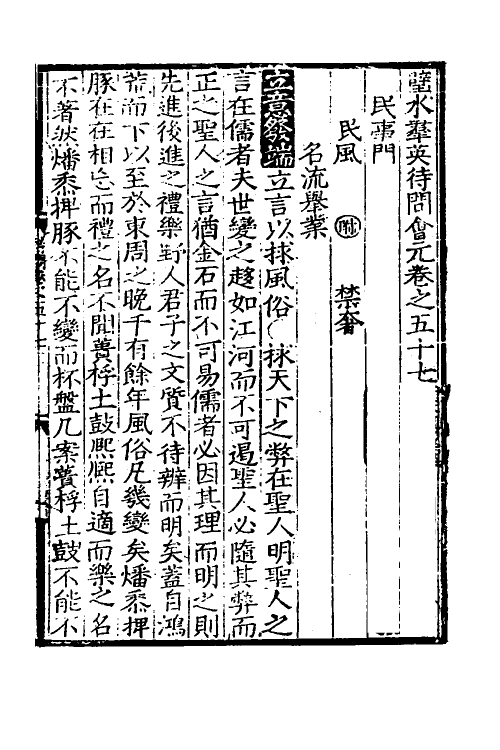 璧水羣英待問會元卷之五十七
民事門
民風 附 禁奢
名流舉業
立意發端 立言以捄風俗 捄天下之弊在聖人明聖人之
言在儒者夫世變之趍如江河而不可遏聖人必隨其弊而
正之聖人之言猶金石而不可易儒者必因其理而明之則
先進後進之禮樂野人君子之文質不待辨而明矣蓋自鴻
荒而下以至於東周之晚千有餘年風俗凡幾變矣燔黍捭
豚在在相忘而禮之名不聞蕢桴土鼓熈熈自適而樂之名
不著然燔黍捭豚不能不變而杯盤几案蕢桴土鼓不能不